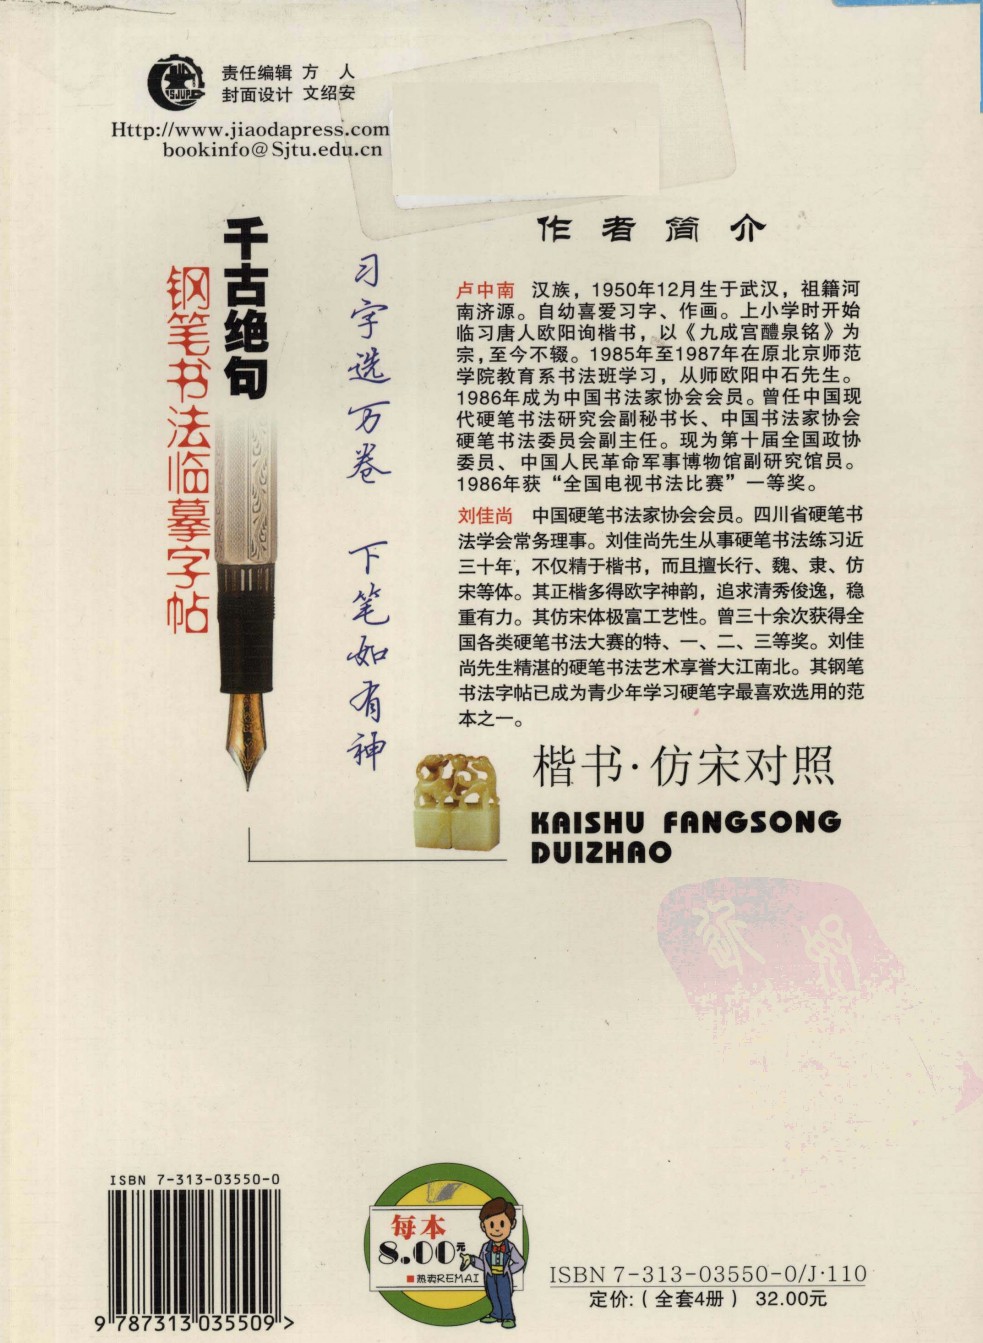 责任编辑 方 人
封面设计 文绍安
Http://www.jiaodapress.com
bookinfo@Sjtu.edu.cn
千古绝句
钢笔书法临摹字帖
习字选万卷 下笔如有神
作者简介
卢中南 汉族，1950年12月生于武汉，祖籍河
南济源。自幼喜爱习字、作画。上小学时开始
临习唐人欧阳询楷书，以《九成宫醴泉铭》为
宗，至今不辍。1985年至1987年在原北京师范
学院教育系书法班学习，从师欧阳中石先生。
1986年成为中国书法家协会会员。曾任中国现
代硬笔书法研究会副秘书长、中国书法家协会
硬笔书法委员会副主任。现为第十届全国政协
委员、中国人民革命军事博物馆副研究馆员。
1986年获“全国电视书法比赛”一等奖。
刘佳尚 中国硬笔书法家协会会员。四川省硬笔书
法学会常务理事。刘佳尚先生从事硬笔书法练习近
三十年，不仅精于楷书，而且擅长行、魏、隶、仿
宋等体。其正楷多得欧字神韵，追求清秀俊逸，稳
重有力。其仿宋体极富工艺性。曾三十余次获得全
国各类硬笔书法大赛的特、一、二、三等奖。刘佳
尚先生精湛的硬笔书法艺术享誉大江南北。其钢笔
书法字帖已成为青少年学习硬笔字最喜欢选用的范
本之一。
楷书·仿宋对照
KAISHU FANGSONG
DUIZHAO
ISBN 7-313-03550-0
9 787313 035509 >
每本
8.00元
■热卖REMAI
ISBN 7-313-03550-0/J·110
定价:(全套4册) 32.00元